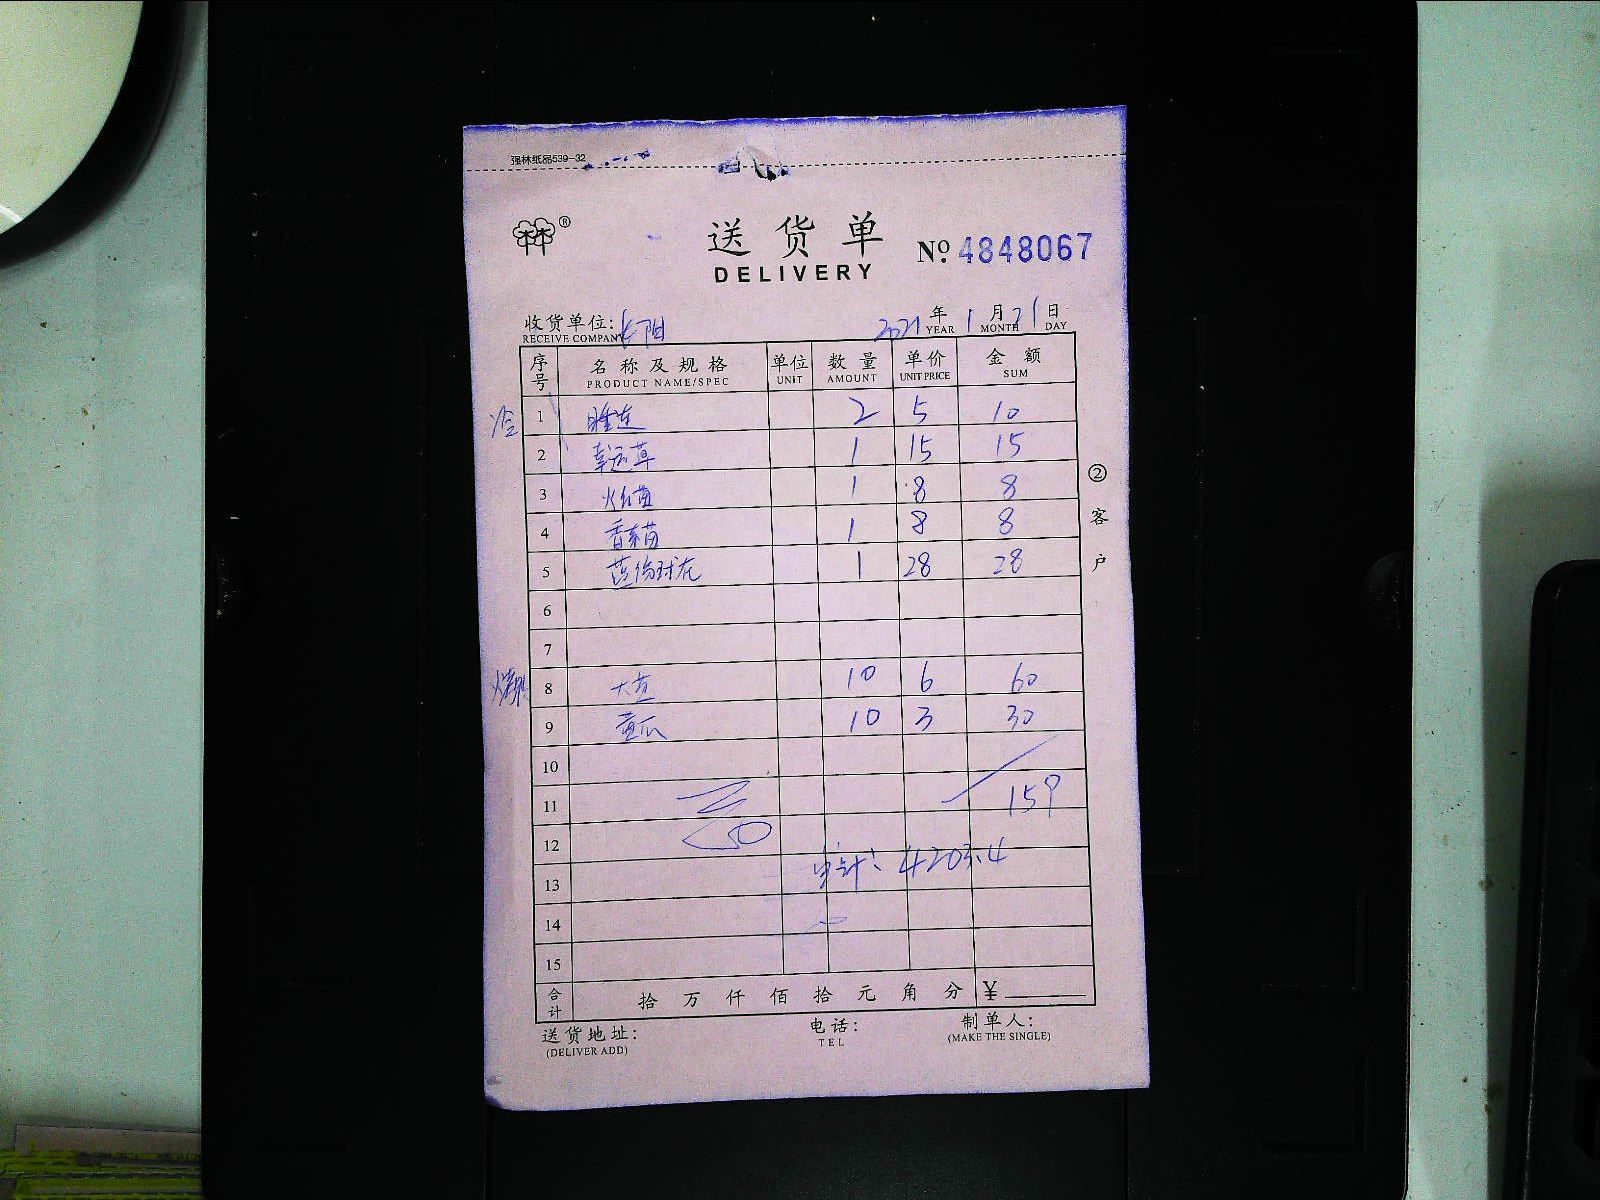 强林纸品539-32
®
送货单
DELIVERY
№ 4848067
收货单位: 长阳
RECEIVE COMPANY
2021 年 YEAR 1 月 MONTH 21 日 DAY
序号 名称及规格 PRODUCT NAME/SPEC 单位 UNIT 数量 AMOUNT 单价 UNIT PRICE 金额 SUM
冷 1 睡莲 2 5 10
2 幸运草 1 15 15
3 1 8 8
4 1 8 8
5 1 28 28
6
7
8 10 6 60
9 黄瓜 10 3 30
10
11 159
12
13 总计: 4203.4
14
15
合计 拾 万 仟 佰 拾 元 角 分 ¥
②客户
送货地址:
(DELIVER ADD)
电话:
TEL
制单人:
(MAKE THE SINGLE)